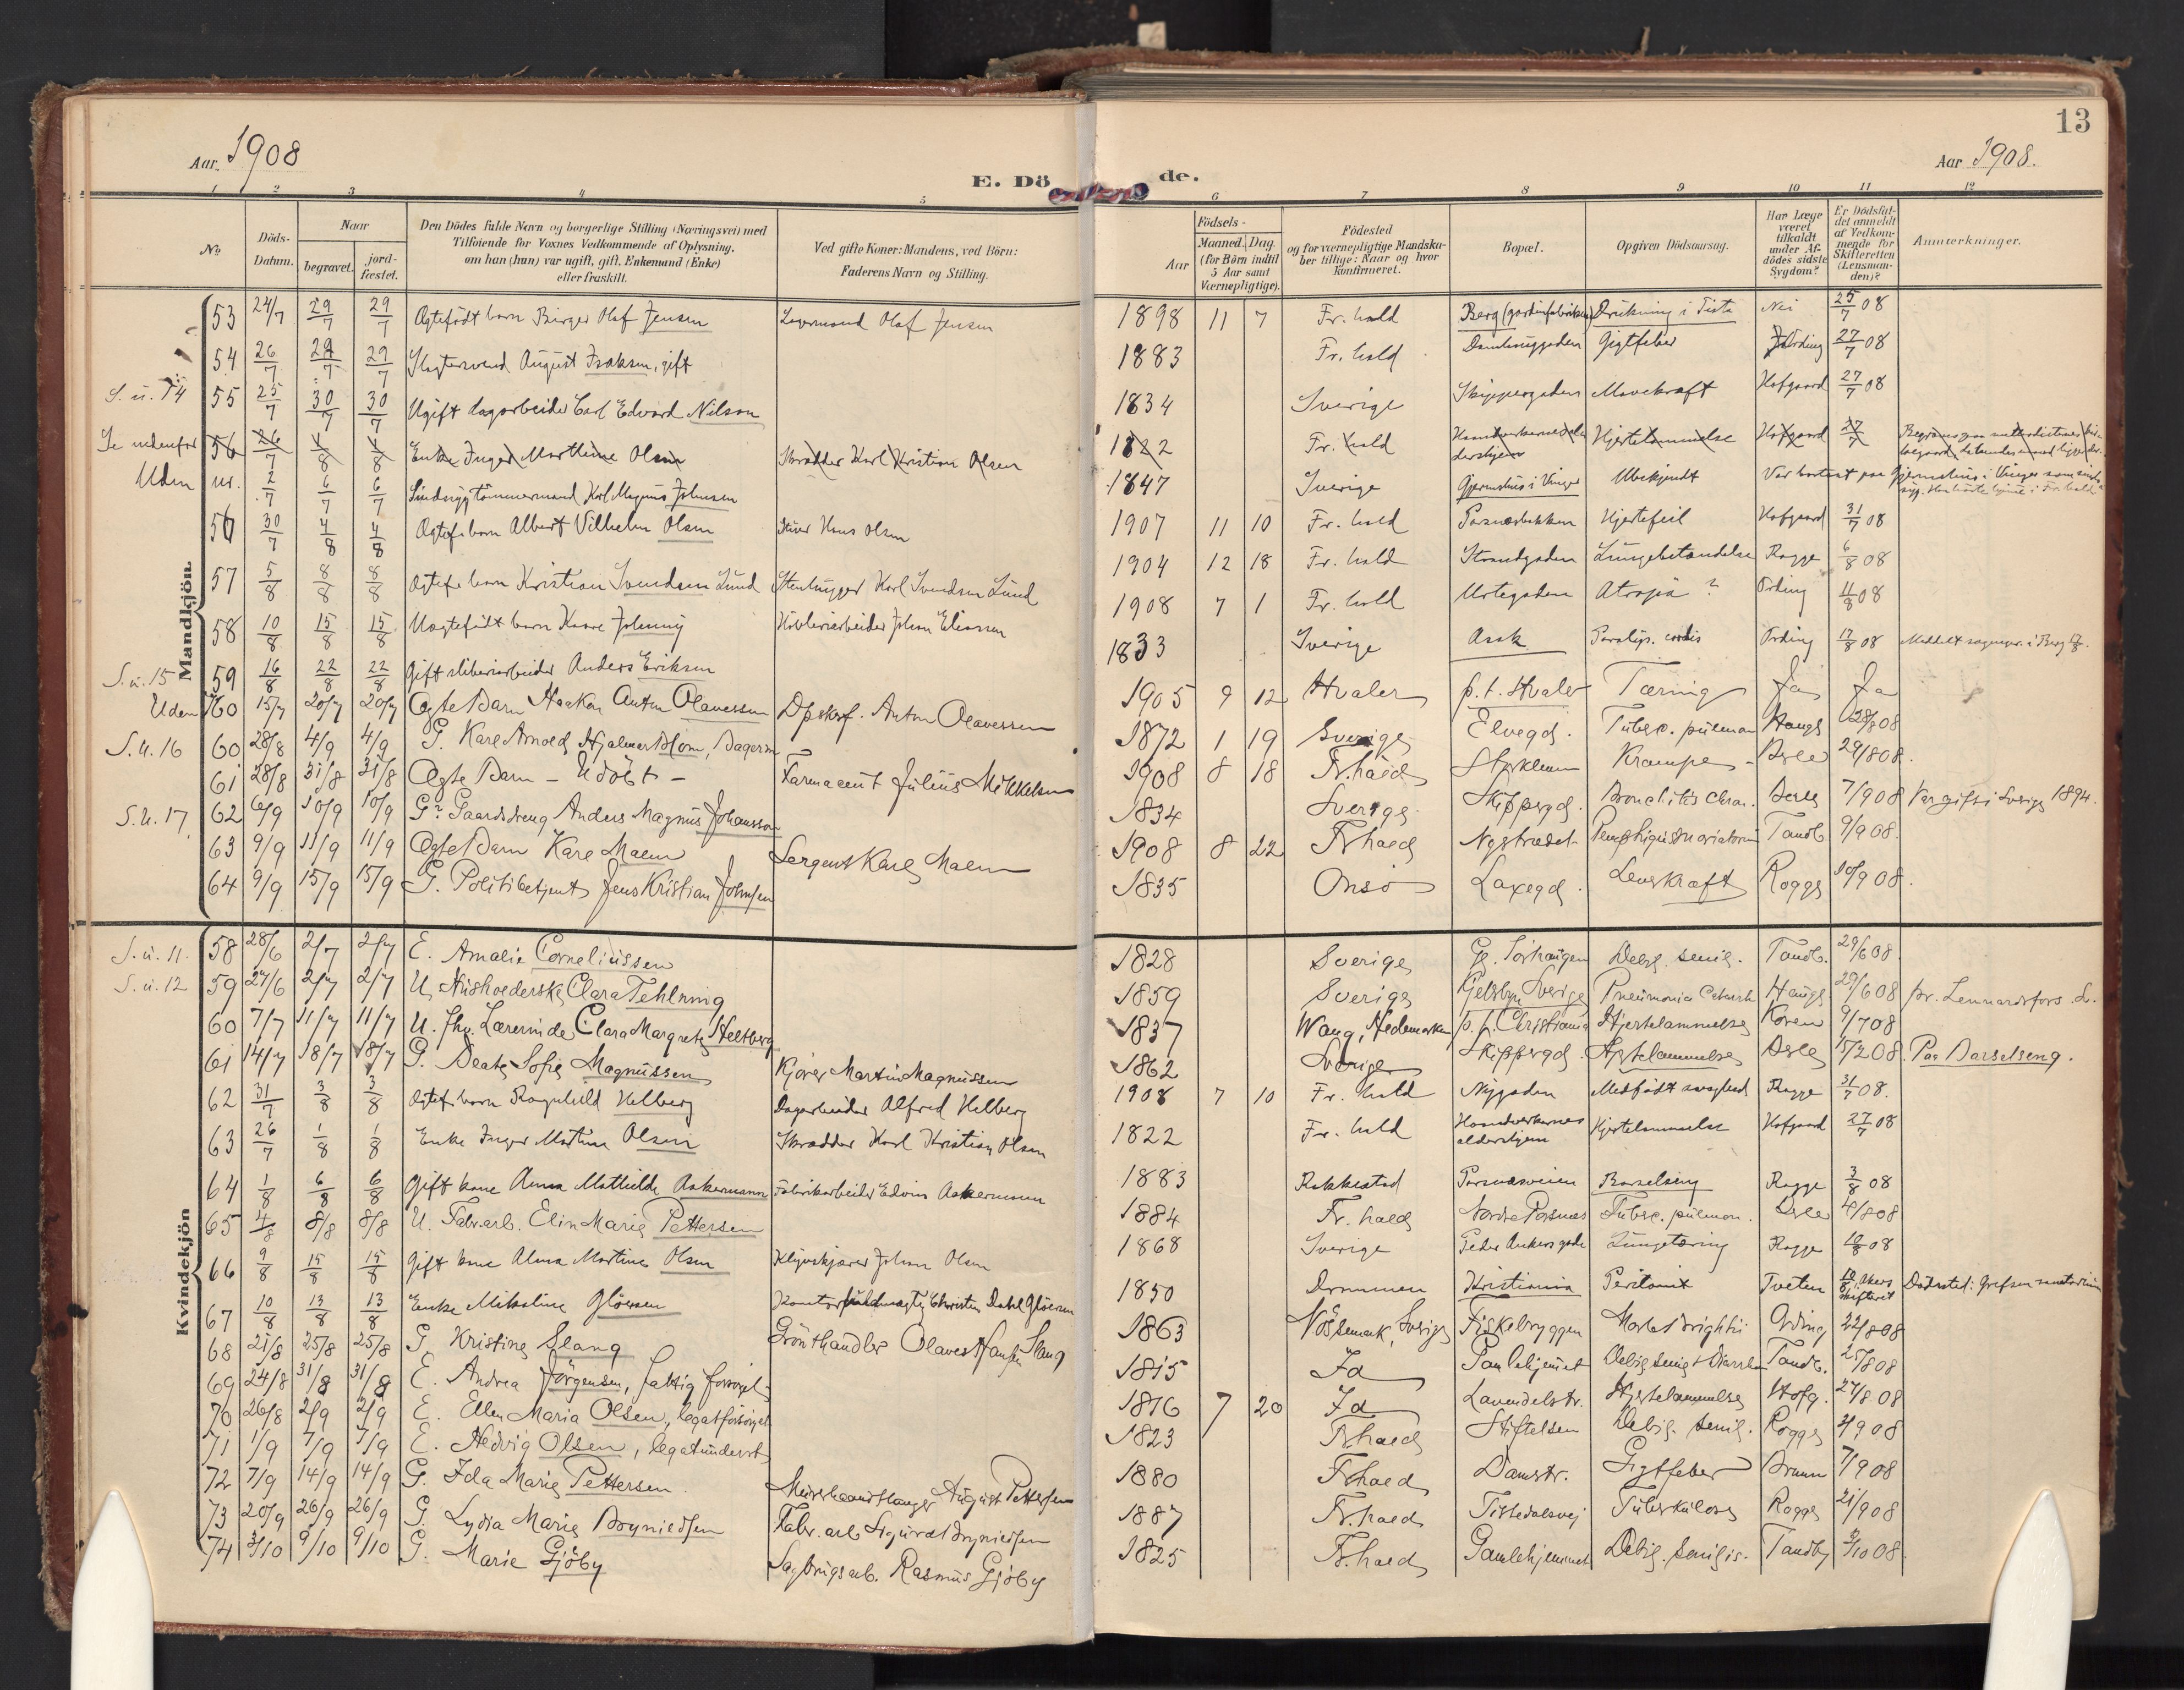 13
Aar 1908
Aar 1908.
E. Dö de.
1 2 3 4 5 6 7 8 9 10 11 12
No
Döds-Datum.
Naar
begravet.
jord-fæstet.
Den Dödes fulde Navn og borgerlige Stilling (Næringsvei) med Tilföiende for Voxnes Vedkommende af Oplysning, om han (hun) var ugift, gift, Enkemand (Enke) eller fraskilt.
Ved gifte Koner: Mandens, ved Börn: Faderens Navn og Stilling.
Födsels-
Aar
Maaned. Dag. (for Börn indtil 5 Aar samt Værnepligtige).
Födested og for værnepligtige Mandska-ber tillige: Naar og hvor Konfirmeret.
Bopæl.
Opgiven Dödsaarsag.
Har Læge været tilkaldt under Af-dödes sidste Sygdom?
Er Dödsfal-det anmeldt af Vedkom-mende for Skifteretten (Lensman-den)?
Anmærkninger.
Mandkjön.
53 24/7 29/7 29/7 Ægtefödt barn Birger Olaf Jensen Olaf Jensen 1898 11 7 Fr.hald Berg Drukning i Tista Nei 25/7 08
54 26/7 29/7 29/7 August Isaksen, gift 1883 Fr. hald Gigtfeber Ording 27/7 08
S. u. 14 55 25/7 30/7 30/7 Ugift dagarbeider Carl Edvard Nilsen 1834 Sverige Skippergaden Mavekræft Hofgaard 27/7 08
Se nedenfor 56 26/7 1/8 1/8 Enke Inger Martine Olsen Skrædder Karl Kristian Olsen 1822 Fr. hald Hjertelammelse Hofgaard 27/7
Uden nr. 2/7 6/7 6/7 Sindssyg tömmermand Karl Magnus Johnsen 1847 Sverige Ubekjendt Var bortsat paa
56 30/7 4/8 4/8 Ægtef. barn Albert Vilhelm Olsen Hans Olsen 1907 11 10 Fr. hald Porsnæsbakken Hjertefeil Hofgaard 31/7 08
57 5/8 8/8 8/8 Ægtef. barn Kristian Svendsen Lund Stenhugger Karl Svendsen Lund 1904 12 18 Fr. hald Strandgaden Lungebetændelse Rogge 6/8 08
58 10/8 15/8 15/8 Uægtefödt barn Kaare Johnny Hövleriarbeider Johan Eliassen 1908 7 1 Fr. hald Urtegaden Atropia ? Ording 11/8 08
S. u. 15 59 16/8 22/8 22/8 Gift sliberiarbeider Anders Eriksen 1833 Sverige Ask Paralys. cordis Ording 17/8 08
Uden 15/7 20/7 20/7 Ægte Barn Haakon Anton Olavessen Dpskrf. Anton Olavessen 1905 9 12 Hvaler p.t. Hvaler Tæring Ja Ja
S. u. 16 60 28/8 4/9 4/9 G. Karl Arnold Hjalmar Blom, Dagarb. 1872 1 19 Sverige Elvegd. Tuberc. pulmon Haugs 28/8 08
61 28/8 31/8 31/8 Ægte Barn - Udöbt - Farmaceut Julius Mikkelsen 1908 8 18 Fr.hald Krampe 29/8 08.
S. u. 17 62 6/9 10/9 10/9 G. Gaardsdreng Anders Magnus Johansson 1834 Sverige Skippergd. Bronchitis chron. 7/9 08 Var gift i Sverige 1894.
63 9/9 11/9 11/9 Ægte Barn Kåre Malm Sergent Karl Malm 1908 8 22 Fr.hald Nystrædet Tandb. 9/9 08.
64 9/9 15/9 15/9 G. Politibetjent Jens Kristian Johnsen 1835 Onsö Laxegd. Leverkræft Rogge 10/9 08.
Kvindekjön
S. u. 11. 58 28/6 2/7 2/7 E. Amalie Corneliussen 1828 Sverige Debil. senil. Tandb. 29/6 08
S. u. 12 59 27/6 2/7 2/7 U. Husholderske Clara Fehlning 1859 Sverige Sverige Pneumonia Haugs 29/6 08 pr. Lennardsfors S.
60 7/7 11/7 11/7 U. fhv. Lærerinde Clara Margrete Heltberg 1837 Wang, Hedemarken p.t. Christiania Hjertelammelse Koren 9/7 08
61 14/7 18/7 18/7 G. Beate Sofie Magnussen Kjörer Martin Magnussen 1862 Sverige Skippergd. Hjertelammelse 15/7 08 Paa Barselseng.
62 31/7 3/8 3/8 Ægtef. barn Ragnhild Helberg Dagarbeider Alfred Helberg 1908 7 10 Fr. hald Nygaden Medfödt svaghed Rogge 31/7 08.
63 26/7 1/8 1/8 Enke Inger Martine Olsen Skrædder Karl Kristian Olsen 1822 Fr. hald Haandverkernes aldershjem Hjertelammelse Hofgaard 27/7 08
64 1/8 6/8 6/8 Gift kone Anna Mathilde Askermann Fabrikarbeider Edvin Askermann 1883 Rakkestad Porsnæsveien Barselseng Rogge 3/8 08
65 4/8 8/8 8/8 U. Fabr.arb. Elin Marie Pettersen 1884 Fr. hald Nordre Porsnæs Tuberc. pulmon. 4/8 08
66 9/8 15/8 15/8 Gift kone Alma Martine Olsen Johan Olsen 1868 Sverige Peder Ankers gade Lungetæring Rogge 10/8 08
67 10/8 13/8 13/8 Enke Mikoline Glöersen Kontorfuldmægtig Christen Dahl Glöersen 1850 Drammen Kristiania Peritonit Tveten 10/8 Akers skifteret Dödssted: Grefsen sanatorium
68 21/8 25/8 25/8 G. Kristine Slang Grönthandler Olaves Hansen Slang 1863 Nössemark, Sverige Fiskebryggen Morbus brightii Ording 22/8 08
69 24/8 31/8 31/8 E. Andrea Jörgensen, fattig forsörget 1815 Id Gamlehjemmet Debil. senil + Diarrhe Tandb. 25/8 08
70 26/8 2/9 2/9 E. Ellen Maria Olsen, legatforsörget 1816 7 20 Id Lavendelstr. Hjertelammelse Hofg. 27/8 08
71 1/9 7/9 7/9 E. Hedvig Olsen, legatunderst. 1823 Fr.hald Stiftelsen Debil. senil. Rogge 2/9 08
72 7/9 14/9 14/9 G. Ida Marie Pettersen Murerhaandlanger August Pettersen 1880 Fr.hald Damstr. Gigtfeber Brunn 7/9 08
73 20/9 26/9 26/9 G. Lydia Marie Brynildsen Fabr. arb. Sigurd Brynildsen 1887 Fr.hald Tistedalsvej Tuberkulose Rogge 21/9 08
74 3/10 9/10 9/10 G. Marie Gjöby Sagbrugsarb. Rasmus Gjöby 1825 Fr.hald Gamlehjemmet Debil. senilis. Tandbg 5/10 08.